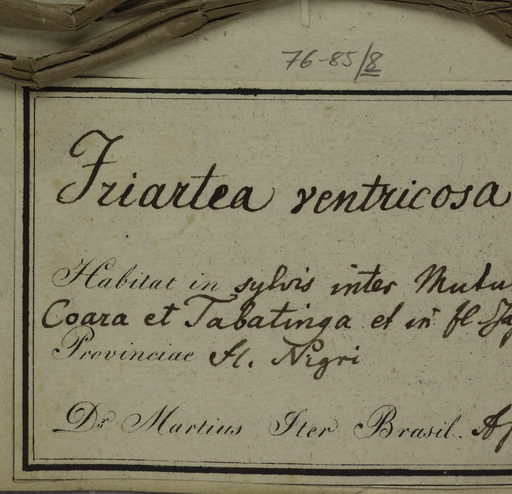 76-85/8
Iriartea ventricosa
Habitat in sylvis inter
Coara et Tabatinga et in fl
Provinciae fl. Nigri
Dr. Martius Iter Brasil.